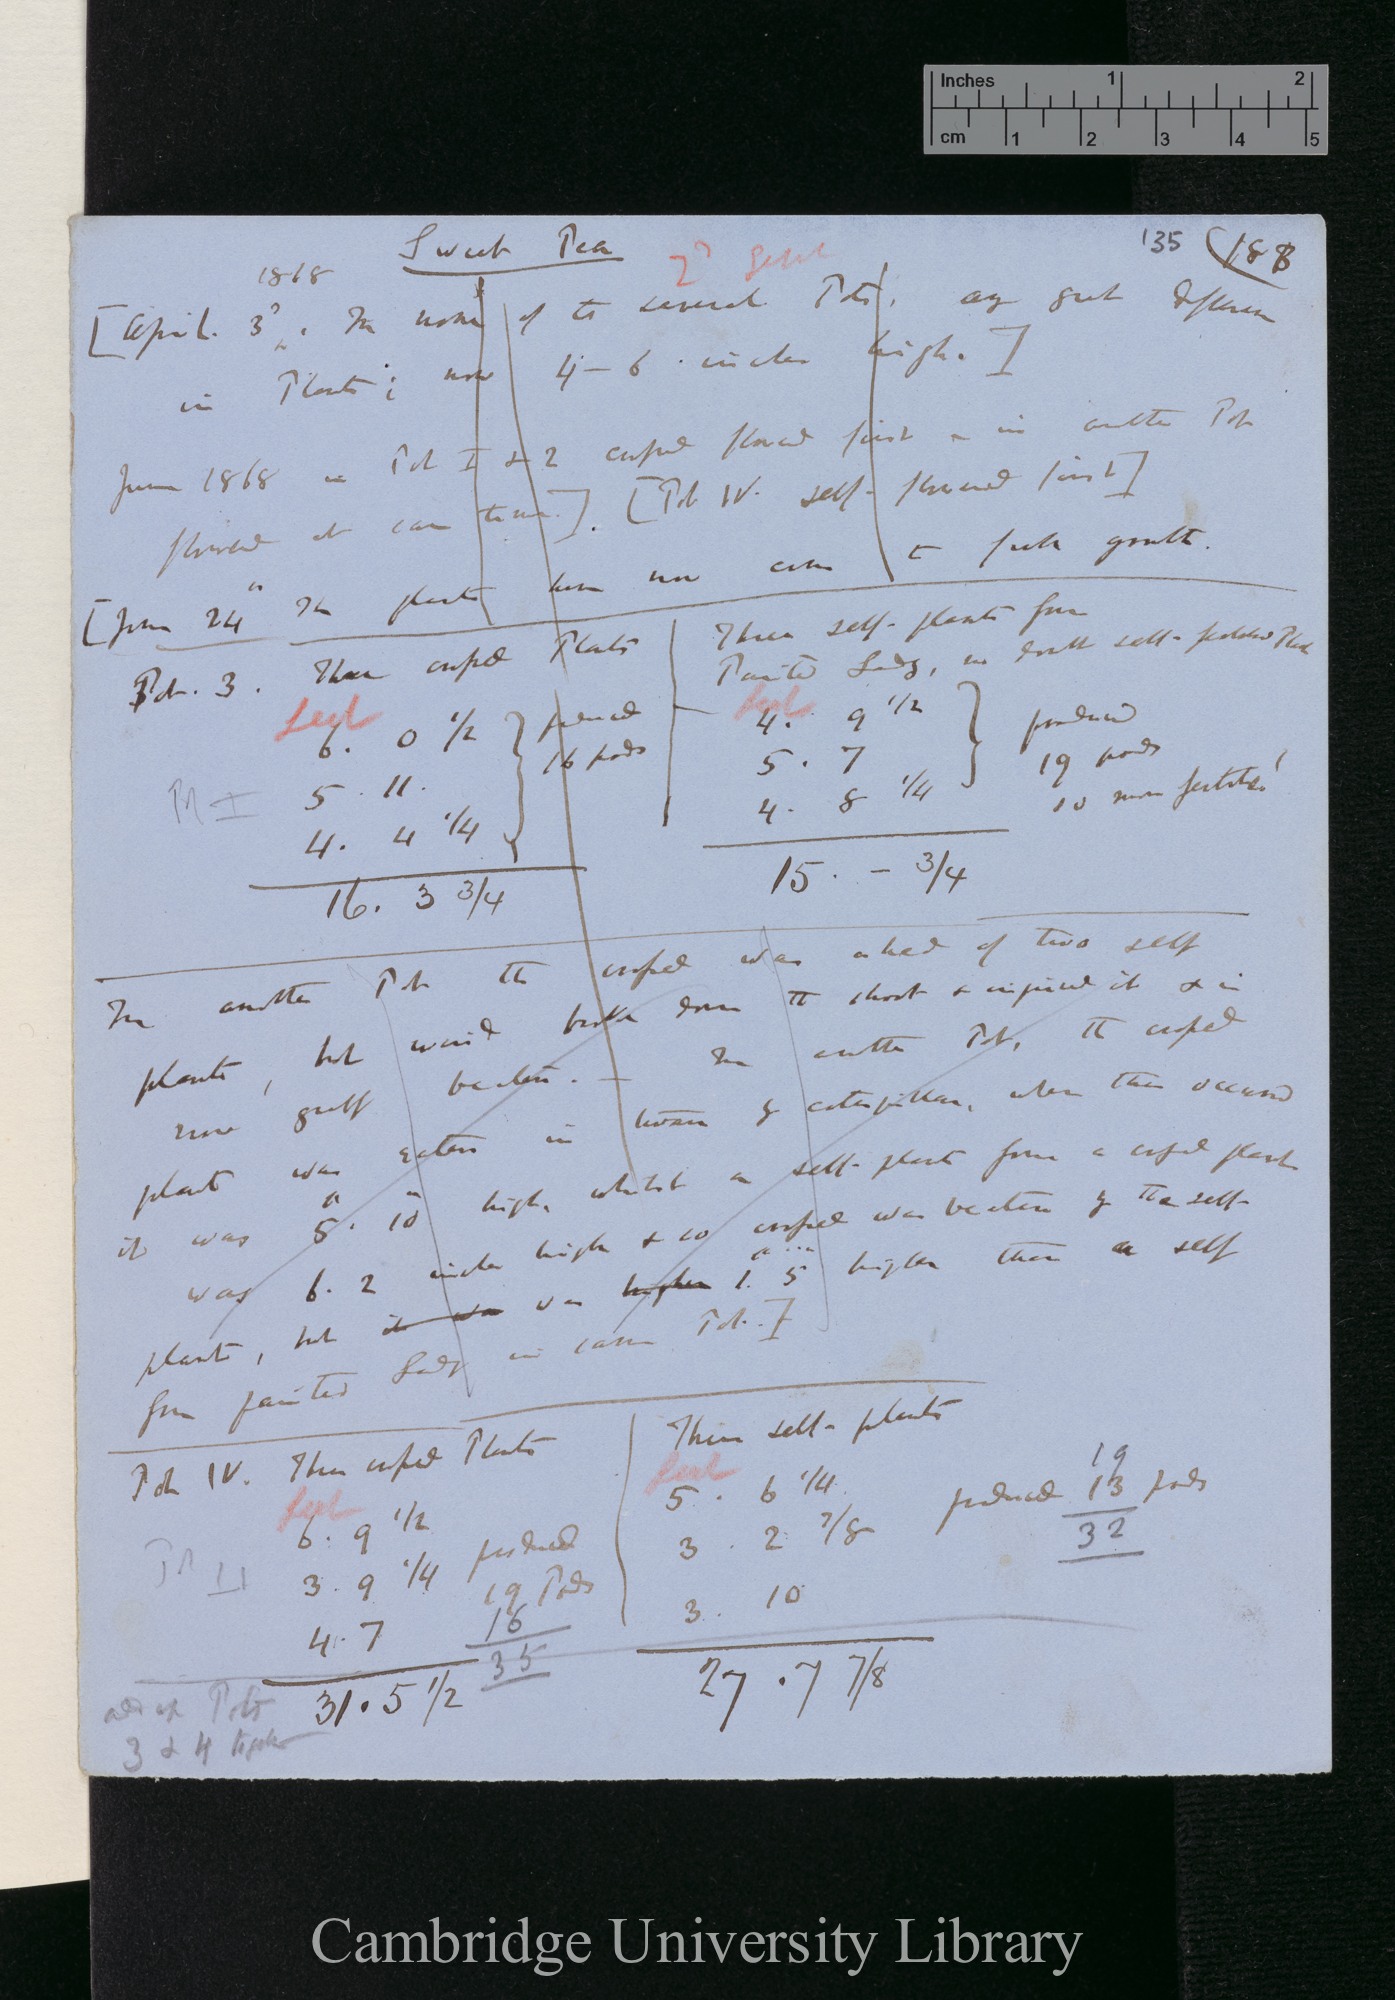 Inches 1 2
cm 1 2 3 4 5
135 (188
Sweet Pea
2d Genl
1868
[April. 3d. In none of the several Pots, any great difference
in Plants; now 4 – 6 inches high.]
June 1868 in Pot I & 2 crossed flowered first & in another Pot
flowered at same time.]. [Pot IV. self- flowered first]
[June 24th The plants have now come to full growth.
Pot. 3. Three crossed Plants
feet
6. 0 1/2
5. 11.
4. 4 1/4
16. 3 3/4
produced
16 pods
Pot I
Three self-plants from
Painted Lady, in fourth self-fertilised
feet
4. 9 1/2
5. 7
4. 8 1/4
15. – 3/4
produced
19 pods
so more fertile!
In another Pot the crossed was ahead of two self
plants, but wind broke down the shoot & injured it & is
now self beaten. — In another Pot, the crossed
plant was eaten in bosom by caterpillar, when this occurred
it was 5' . 10" high, whilst a self-plant from a crossed plant
was 6. 2 inches high & so crossed was beaten by the self-
plants, but it was was higher 1' 5" higher than a self
from painted Lady in same Pot.]
Pot IV. Three crossed Plants
feet
6. 9 1/2
3. 9 1/4
4. 7
31. 5 1/2
produced
19 Pods
16
35
Pot II
Three self-plants
feet
5. 6 1/4
3. 2 7/8
3. 10
27. 7 7/8
19
produced 13 pods
32
add up Pots
3 & 4 together
Cambridge University Library